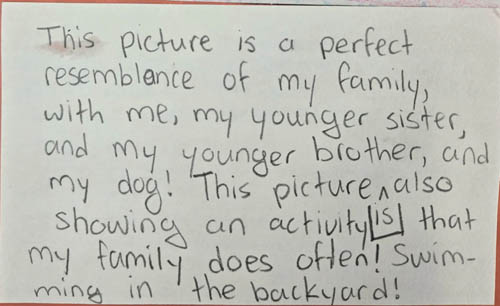 This picture is a perfect
resemblence of my family,
with me, my younger sister,
and my younger brother, and
my dog! This picture ^ also
showing an activity [is] that
my family does often! Swim-
ming in the backyard!